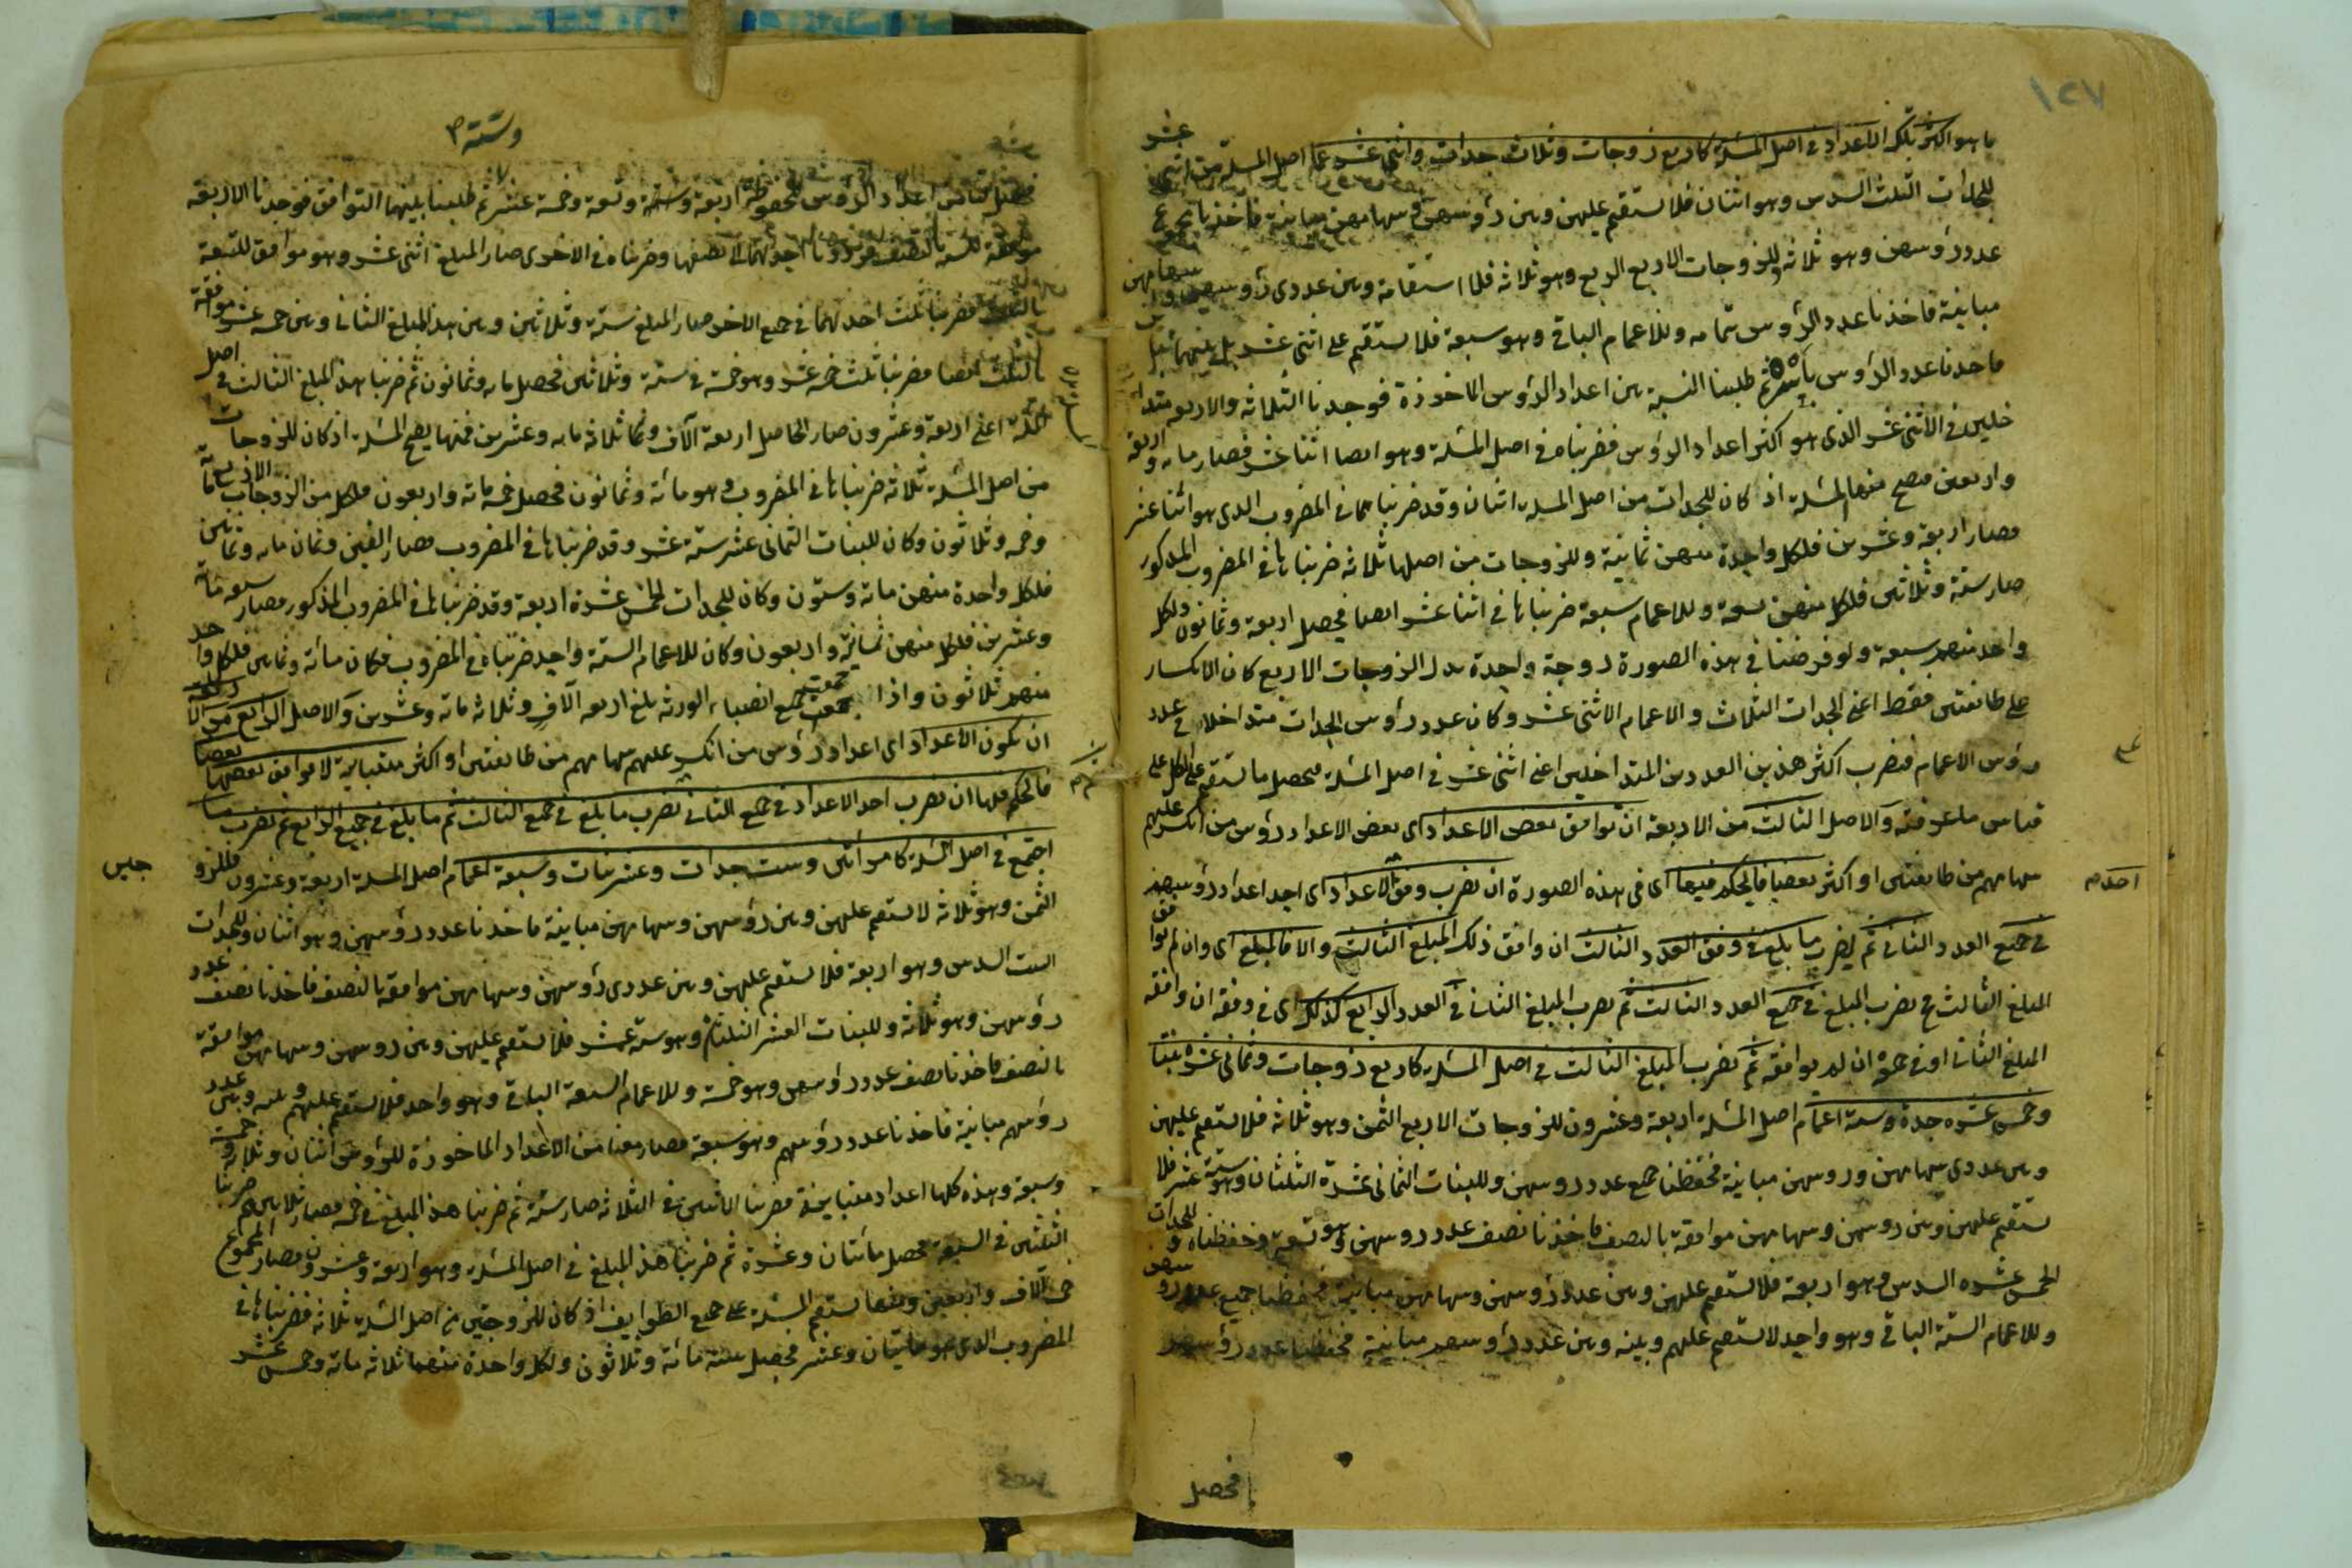 ١٢٧
ما هو اكثر تلك الاعداد في اصل المسئلة كاربع زوجات وثلاث جدات واثنى عشر عما اصل المسئلة من اثنى عشر
للجدات الثلث السدس وهو اثنان فلا يستقيم عليهن وبين رؤسهن وسهامهن مباينة فاخذنا مجموع
عدد رؤسهن وهو ثلاثة وللزوجات الاربع الربع وهو ثلاثة فلا استقامة وبين عددى رؤسهن وسهامهن
مباينة فاخذنا عدد الرؤس بتمامه وللاعمام الباقى وهو سبعة فلا يستقيم على اثنى عشر بل بينهما تباين
فاخذنا عدد الرؤس باسره ثم طلبنا النسبة بين اعداد الرؤس الماخوذة فوجدنا الثلاثة والاربعة متدا
خلين في الاثنى عشر الذى هو اكثر اعداد الرؤس فضربناه في اصل المسئلة وهو ايضا اثنا عشر فصار مائة واربعة
واربعين فيصح منها المسئلة اذ كان للجدات من اصل المسئلة اثنان وقد ضربناهما في المضروب الذى هو اثنا عشر
فصار اربعة وعشرين فلكل واحدة منهن ثمانية وللزوجات من اصلها ثلاثة ضربناها في المضروب المذكور
صار ستة وثلاثين فلكل منهن تسعة وللاعمام سبعة ضربناها في اثنا عشر ايضا فحصل اربعة وثمانون ولكل
واحد منهم سبعة ولو فرضنا في هذه الصورة زوجة واحدة بدل الزوجات الاربع كان الانكسار
على طائفتين فقط اعنى الجدات الثلاث والاعمام الاثنى عشر وكان عدد رؤس الجدات متداخلا في عدد
رؤس الاعمام فيضرب اكثر هذين العددين المتداخلين اعنى اثنى عشر في اصل المسئلة فيحصل ما يستقيم على الكل على
قياس ما عرفته والاصل الثالث من الاربعة ان توافق بعض الاعداد اى بعض الاعداد رؤس من انكسر عليهم
سهامهم من طائفتين او اكثر بعضا فالحكم فيها اى في هذه الصورة ان نضرب وفق الاعداد اى احد اعداد رؤسهم
في جميع العدد الثانى ثم يضرب ما بلغ في وفق العدد الثالث ان وافق ذلك المبلغ الثالث والا فالمبلغ اى وان لم يوافق
المبلغ الثالث ح يضرب المبلغ في جميع العدد الثالث ثم يضرب المبلغ الثانى في العدد الرابع كذلك اى في وفقه ان وافقه
المبلغ الثانى او في جميعه ان لم يوافقه ثم يضرب المبلغ الثالث في اصل المسئلة كاربع زوجات وثمانى عشرة بنتا
وخمس عشرة جدة وستة اعمام اصل المسئلة اربعة وعشرون للزوجات الاربع الثمن وهو ثلاثة فلا يستقيم عليهن
وبين عددى سهامهن ورؤسهن مباينة فحفظنا جميع عدد رؤسهن وللبنات الثمانى عشرة الثلثان وهو ستة عشر فلا
يستقيم عليهن وبين رؤسهن وسهامهن موافقة بالنصف فاخذنا نصف عدد رؤسهن وهو تسعة وحفظناه وللجدات
الخمس عشرة السدس وهو اربعة فلا يستقيم عليهن وبين عدد رؤسهن وسهامهن مباينة فحفظنا جميع عدد رؤسهن
وللاعمام الستة الباقى وهو واحد لا يستقيم عليهم وبينه وبين عدد رؤسهم مباينة فحفظنا عدد رؤسهم
فحصل
وستة
فحصل لنا من اعداد الرؤس المحفوظة اربعة وستة وتسعة وخمسة عشر ثم طلبنا بينها التوافق فوجدنا الاربعة
موافقة للستة بالنصف فرددنا احدهما الى نصفها وضربناه في الاخرى صار المبلغ اثنى عشر وهو موافق للتسعة
بالثلث فضربنا ثلث احدهما في جميع الاخر صار المبلغ ستة وثلاثين وبين هذا المبلغ الثانى وبين خمسة عشر موافقة
بالثلث ايضا فضربنا ثلث خمسة عشر وهو خمسة في ستة وثلاثين فحصل مائة وثمانون ثم ضربنا هذا المبلغ الثالث في اصل
المسئلة اعنى اربعة وعشرون صار الحاصل اربعة آلاف وثلاثمائة وعشرين فمنها يصح المسئلة اذ كان للزوجات
من اصل المسئلة ثلاثة ضربناها في المضروب وهو مائة وثمانون فحصل خمسمائة واربعون فلكل من الزوجات الاربع مائة
وخمسة وثلاثون وكان للبنات الثمانى عشر ستة عشر وقد ضربناها في المضروب فصار الفين وثمان مائة وثمانين
فلكل واحدة منهن مائة وستون وكان للجدات الخمس عشرة اربعة وقد ضربناها في المضروب المذكور فصار سبعمائة
وعشرين فلكل منهن ثمانية واربعون وكان للاعمام الستة واحد ضربناه في المضروب فكان مائة وثمانين فلكل واحد
منهم ثلاثون واذا جمعت جميع انصباء الورثة بلغ اربعة آلاف وثلاثمائة وعشرين والاصل الرابع من الاربعة
ان تكون الاعداد اى اعداد رؤس من انكسر عليهم سهامهم من طائفتين او اكثر متباينة لا يوافق بعضها بعضا
فالحكم فيها ان يضرب احد الاعداد في جميع الثانى ثم يضرب ما بلغ في جميع الثالث ثم ما بلغ في جميع الرابع ثم يضرب ما
اجتمع في اصل المسئلة كامرأتين وست جدات وعشر بنات وسبعة اعمام اصل المسئلة اربعة وعشرون فللزو
جين
الثمن وهو ثلاثة لا يستقيم عليهن وبين رؤسهن وسهامهن مباينة فاخذنا عدد رؤسهن وهو اثنان وللجدات
الست السدس وهو اربعة فلا يستقيم عليهن وبين عددى رؤسهن وسهامهن موافقة بالنصف فاخذنا نصف عدد
رؤسهن وهو ثلاثة وللبنات العشر الثلثان وهو ستة عشر فلا يستقيم عليهن وبين رؤسهن وسهامهن موافقة
بالنصف فاخذنا نصف عدد رؤسهن وهو خمسة وللاعمام السبعة الباقى وهو واحد فلا يستقيم عليهم وبينه وبين عدد
رؤسهم مباينة فاخذنا عدد رؤسهم وهو سبعة فصار معنا من الاعداد الماخوذة للرؤس اثنان وثلاثة وخمسة
وسبعة وهذه كلها اعداد متباينة فضربنا الاثنين في الثلاثة صار ستة ثم ضربنا هذا المبلغ في خمسة فصار ثلاثين ثم ضربنا
الثلثين في السبعة فحصل مائتان وعشرة ثم ضربنا هذا المبلغ في اصل المسئلة وهو اربعة وعشرون فصار المجموع
خمسة آلاف واربعين ومنها يستقيم المسئلة على جميع الطوايف اذ كان للزوجتين من اصل المسئلة ثلاثة فضربناها في
المضروب الذى هو مائتان وعشر فحصل ستة مائة وثلاثون ولكل واحدة منهما ثلاثمائة وخمس عشر